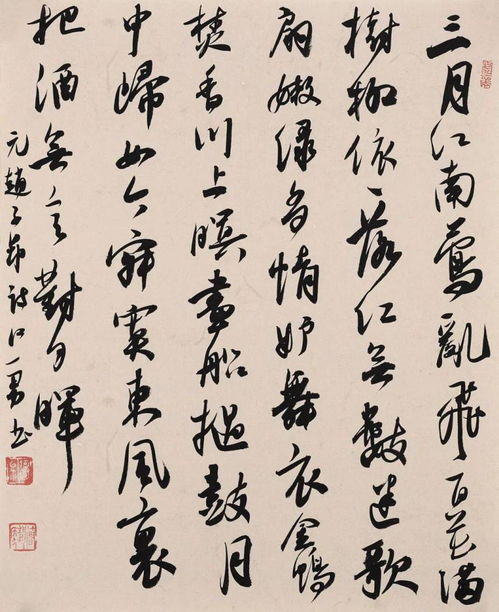 三月江南鶯亂飛百花滿
樹柳依々落紅無數迷歌
扇嫩綠多情妒舞衣金鴨
焚香川上暝畫船撾鼓月
中歸如今寂寞東風裏
把酒無言對夕暉
元趙子昂詩江一男書